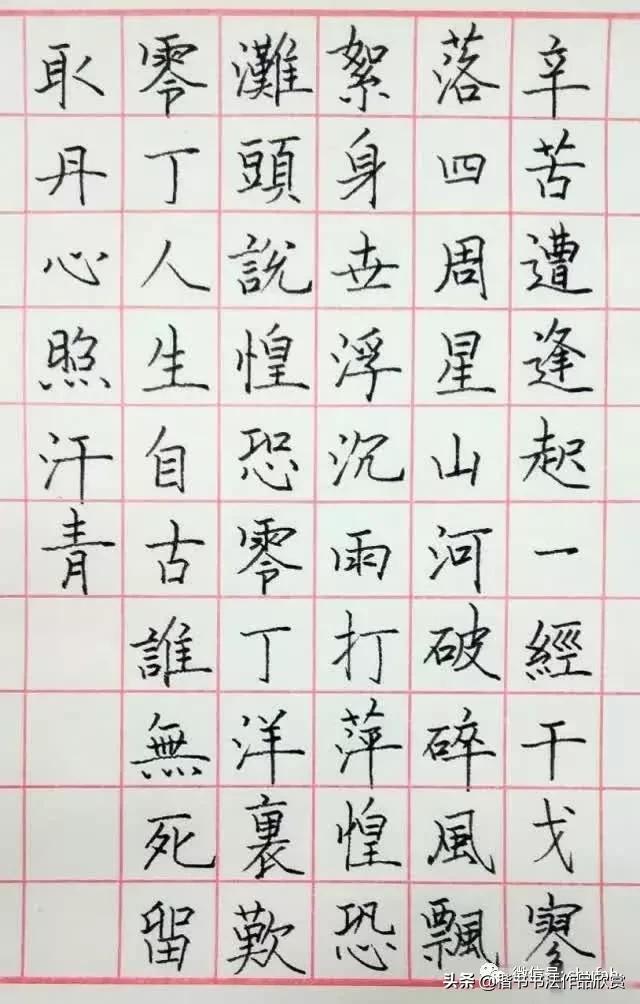 辛苦遭逢起一經干戈寥
落四周星山河破碎風飄
絮身世浮沉雨打萍惶恐
灘頭說惶恐零丁洋裏歎
零丁人生自古誰無死留
取丹心照汗青
微信号:
头条 @楷书书法作品欣赏